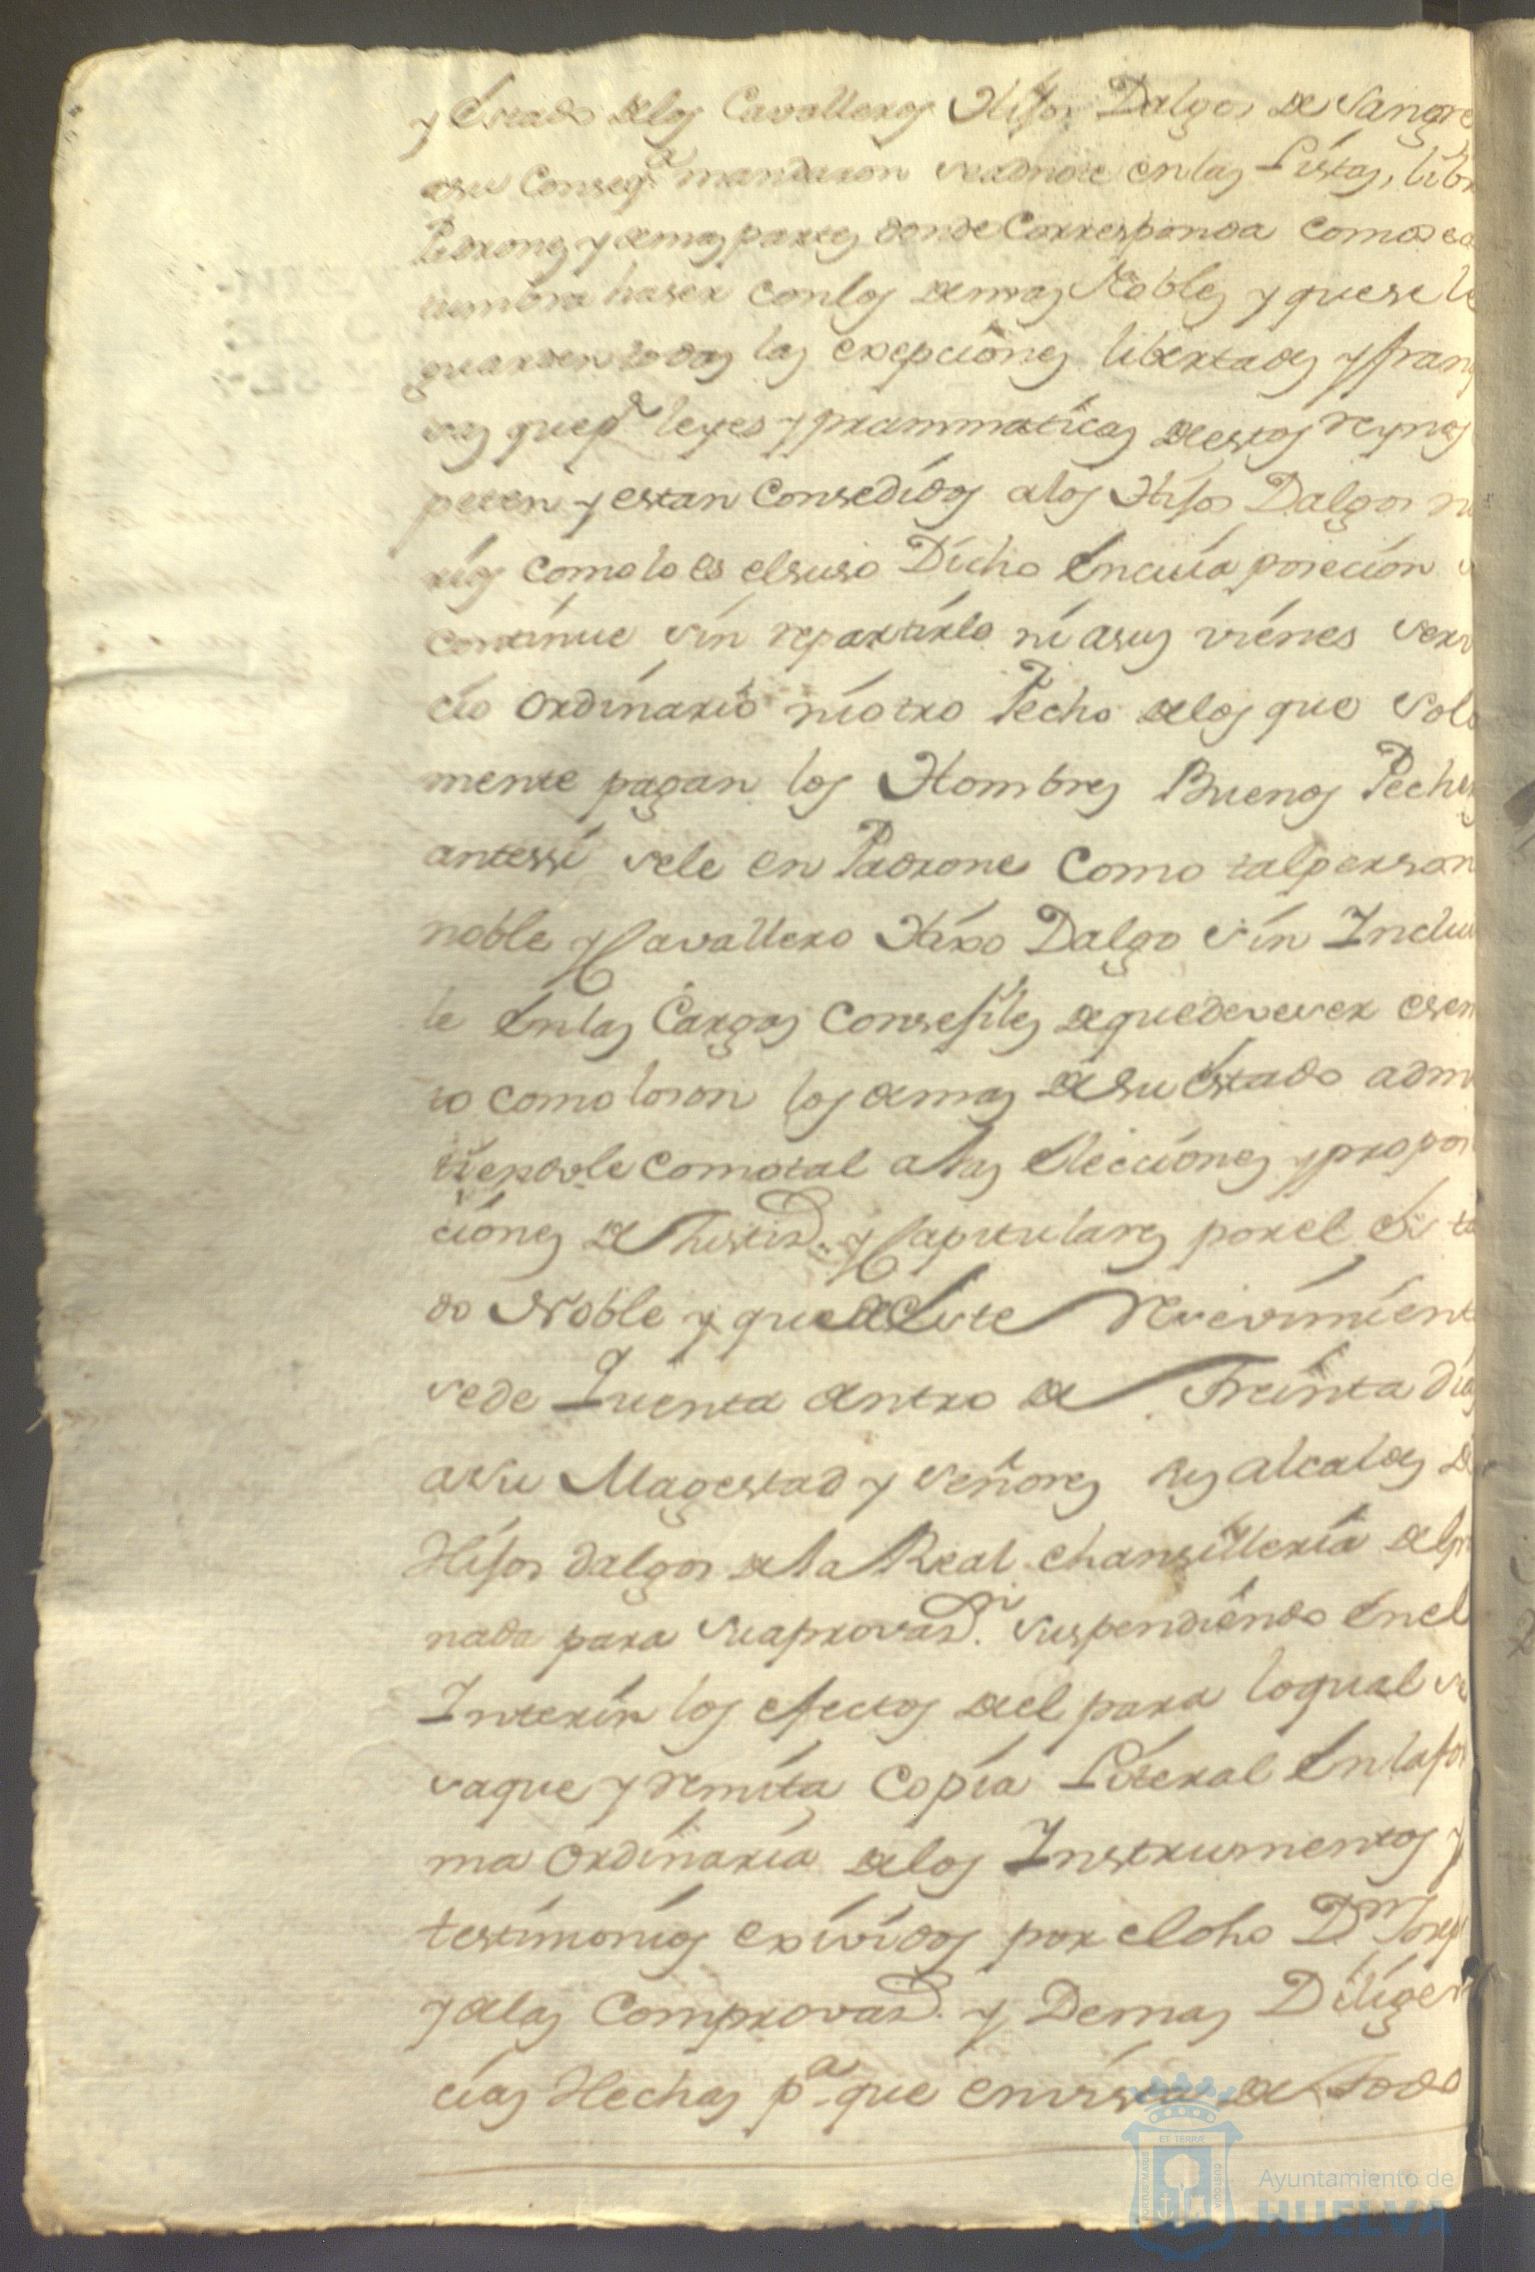 y Estado delos Cavalleros Hijos Dalgos de Sangre
asu Conseqª mandaron seadnote enlas Listas, libr
Pdrones y demas partes donde Corresponda como sea
tumbra haser conlos demas Nobles y quese le
guarden todas las exepciones libertades y fran
sas quepr leyes y prammaticas destos reynos
peten y estan Consedidos alos Hijos Dalgos no
rios como lo es elsuso Dicho Encuia posecion s
continue sin repartirle ni asus vienes serv
cio ordinario niotro Pecho delos que Sola
mente pagan los Hombres Buenos Peche
antessi sele en Padrone Como talperson
noble y Cavallero Hixo Dalgo sin Inclui
le Enlas Cargas Consejiles dequedeveser esen
to como loson los demas desu Estado admi
tiendole comotal alas Elecciones y propoi
ciones de Justiz.ª y Capitulares porel Esta
do Noble y quedeEste Resevimient
sede Quenta dentro de Treinta dias
asu Magestad y señores sus alcaldes de
Hijos dalgos dela Real chansilleria deGra
nada para suaprovaz.n suspendiendo Enel
Interin los efectos del para loqual se
saque y remita Copia Literal Enlafor
ma ordinaria delos Instrumentos y
testimonios exividos por eldho Dn Josep
y delas Comprovaz.s y Demas Diligen
cias Hechas pa que envista de todo
Ayuntamiento de
HUELVA